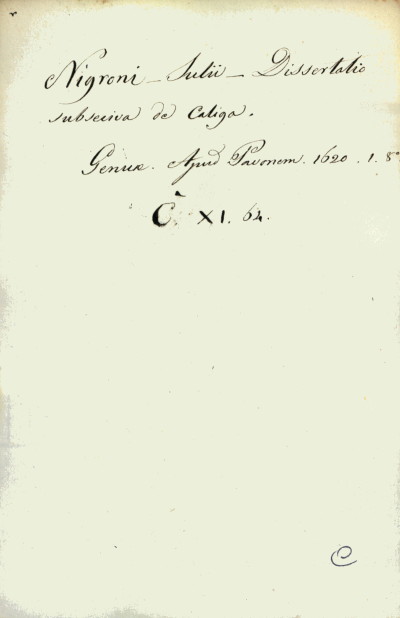 Nigroni _ Julii _ Dissertatio
subseciva de Caliga.
Genuæ. Apud Pavonem. 1620. 1. 8º
C. XI. 64.
C